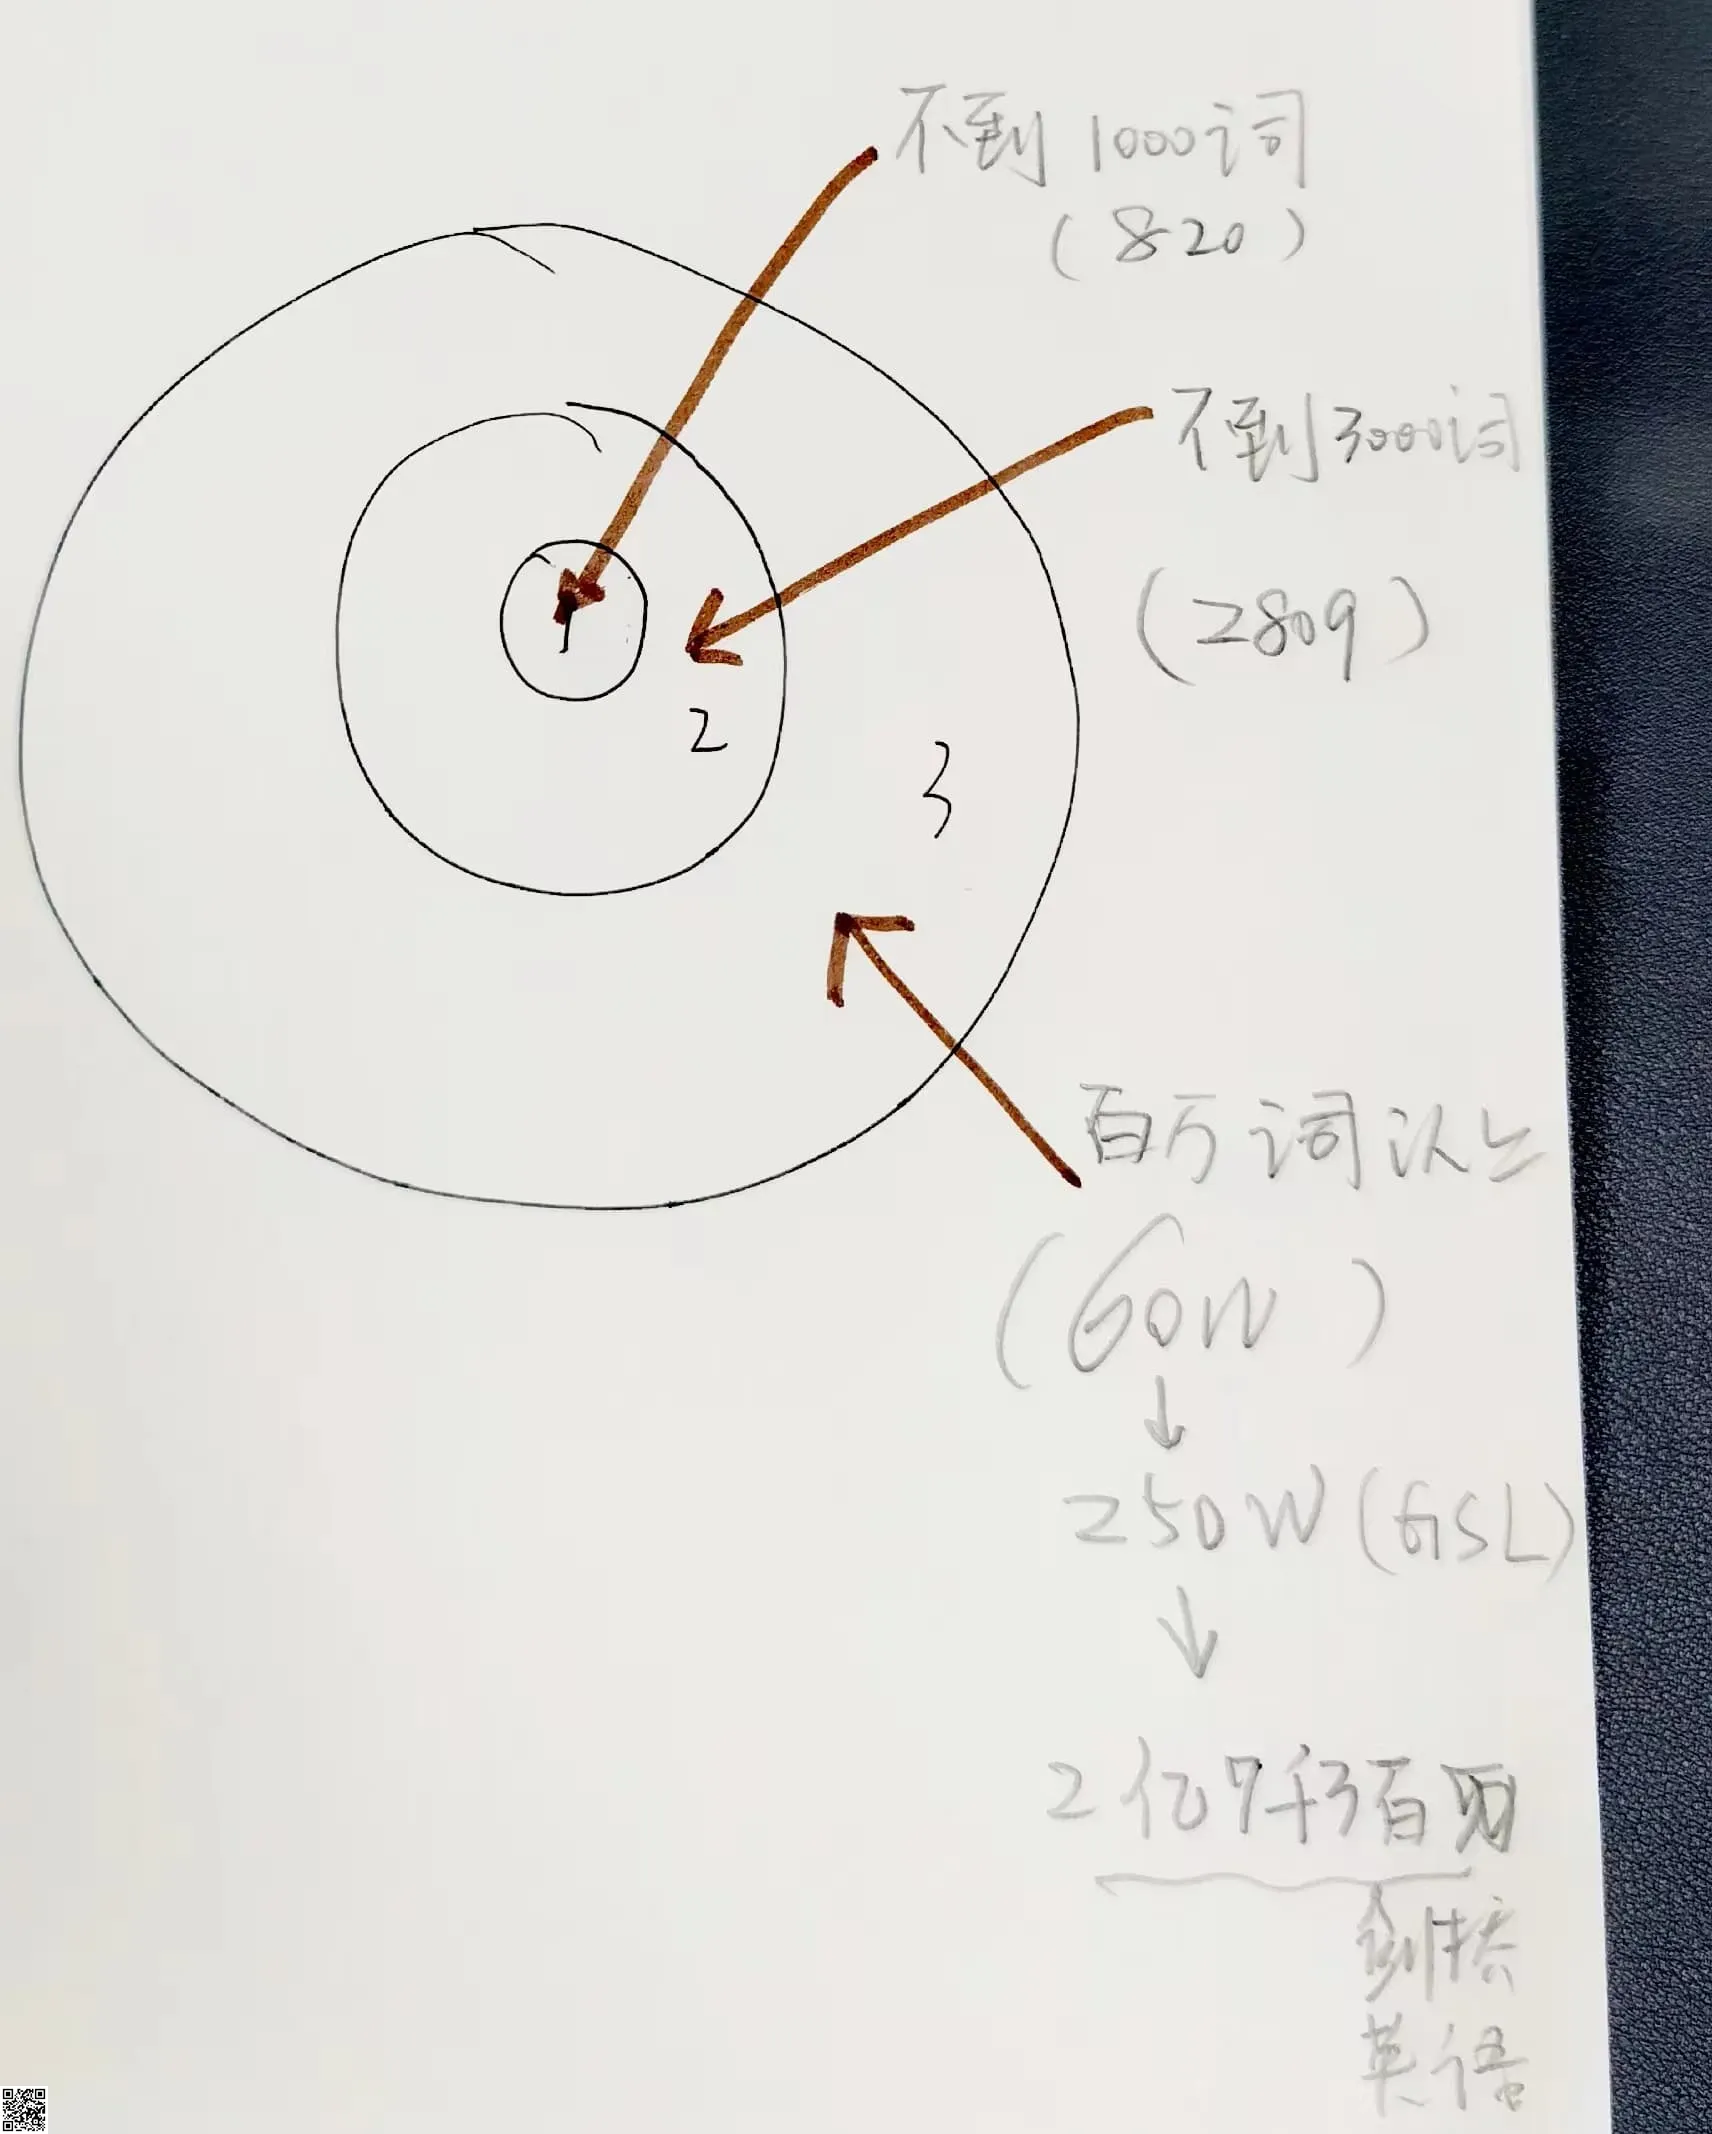 不到1000词
(820)
不到3000词
(2809)
1
2
3
百万词以上
(60W)
↓
250W(GSL)
↓
2亿7千3百万
剑桥
英语